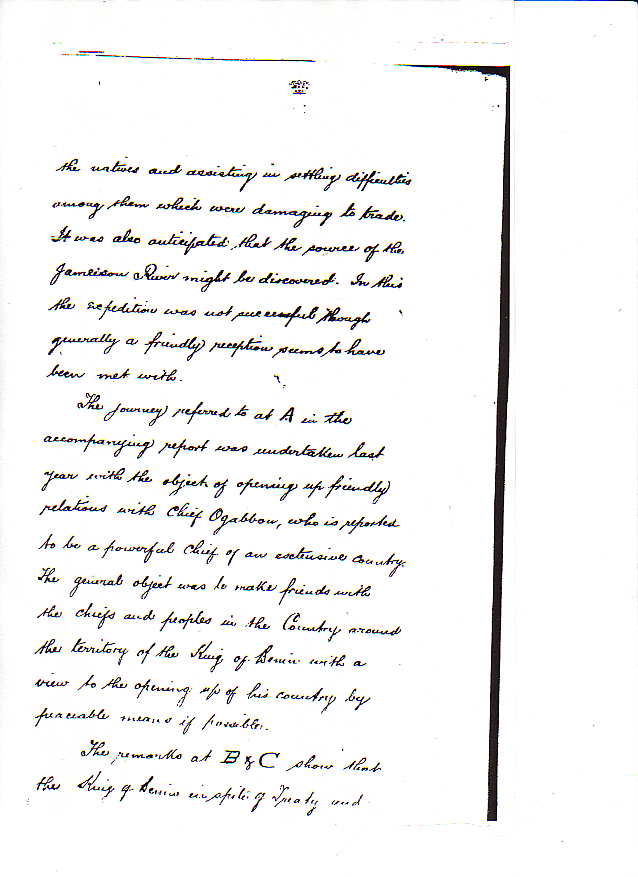 the natives and assisting in settling difficulties
among them which were damaging to trade.
It was also anticipated that the source of the
Jamieson River might be discovered. In this
the expedition was not successful though
generally a friendly reception seems to have
been met with.
The journey referred to at A in the
accompanying report was undertaken last
year with the object of opening up friendly
relations with Chief Ogabbou, who is reported
to be a powerful Chief of an extensive country.
The general object was to make friends with
the chiefs and peoples in the Country around
the territory of the King of Benin with a
view to the opening up of his country by
peaceable means if possible.
The remarks at B & C show that
the King of Benin in spite of Treaty and